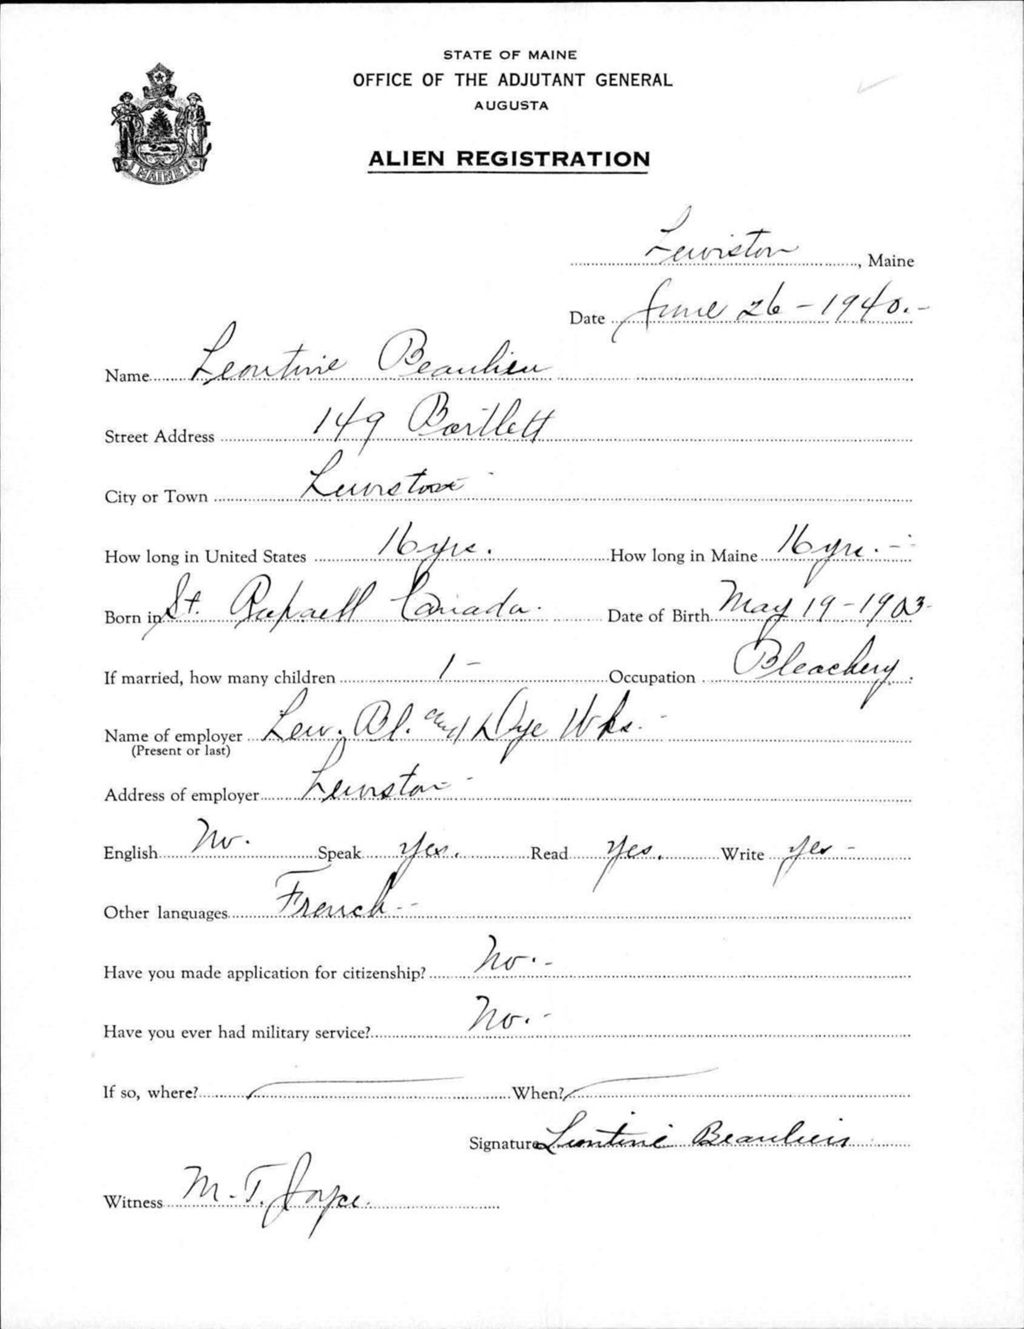 STATE OF MAINE
OFFICE OF THE ADJUTANT GENERAL
AUGUSTA
MAINE
ALIEN REGISTRATION
Lewiston, Maine
Date June 26 - 1940.-
Name Leontine Beaulieu
Street Address 149 Bartlett
City or Town Lewiston -
How long in United States 16 yrs. How long in Maine 16 yrs. -
Born in St. Rapaell Canada. Date of Birth May 19 - 1903-
If married, how many children 1 - Occupation Bleachery
Name of employer Lew. Bl. and Dye Wks. -
(Present or last)
Address of employer Lewiston -
English No. Speak Yes. Read Yes. Write Yes -
Other languages French --
Have you made application for citizenship? No. -
Have you ever had military service? No. -
If so, where? When?
Signature Leontine Beaulieu
Witness M. T. Joyce.